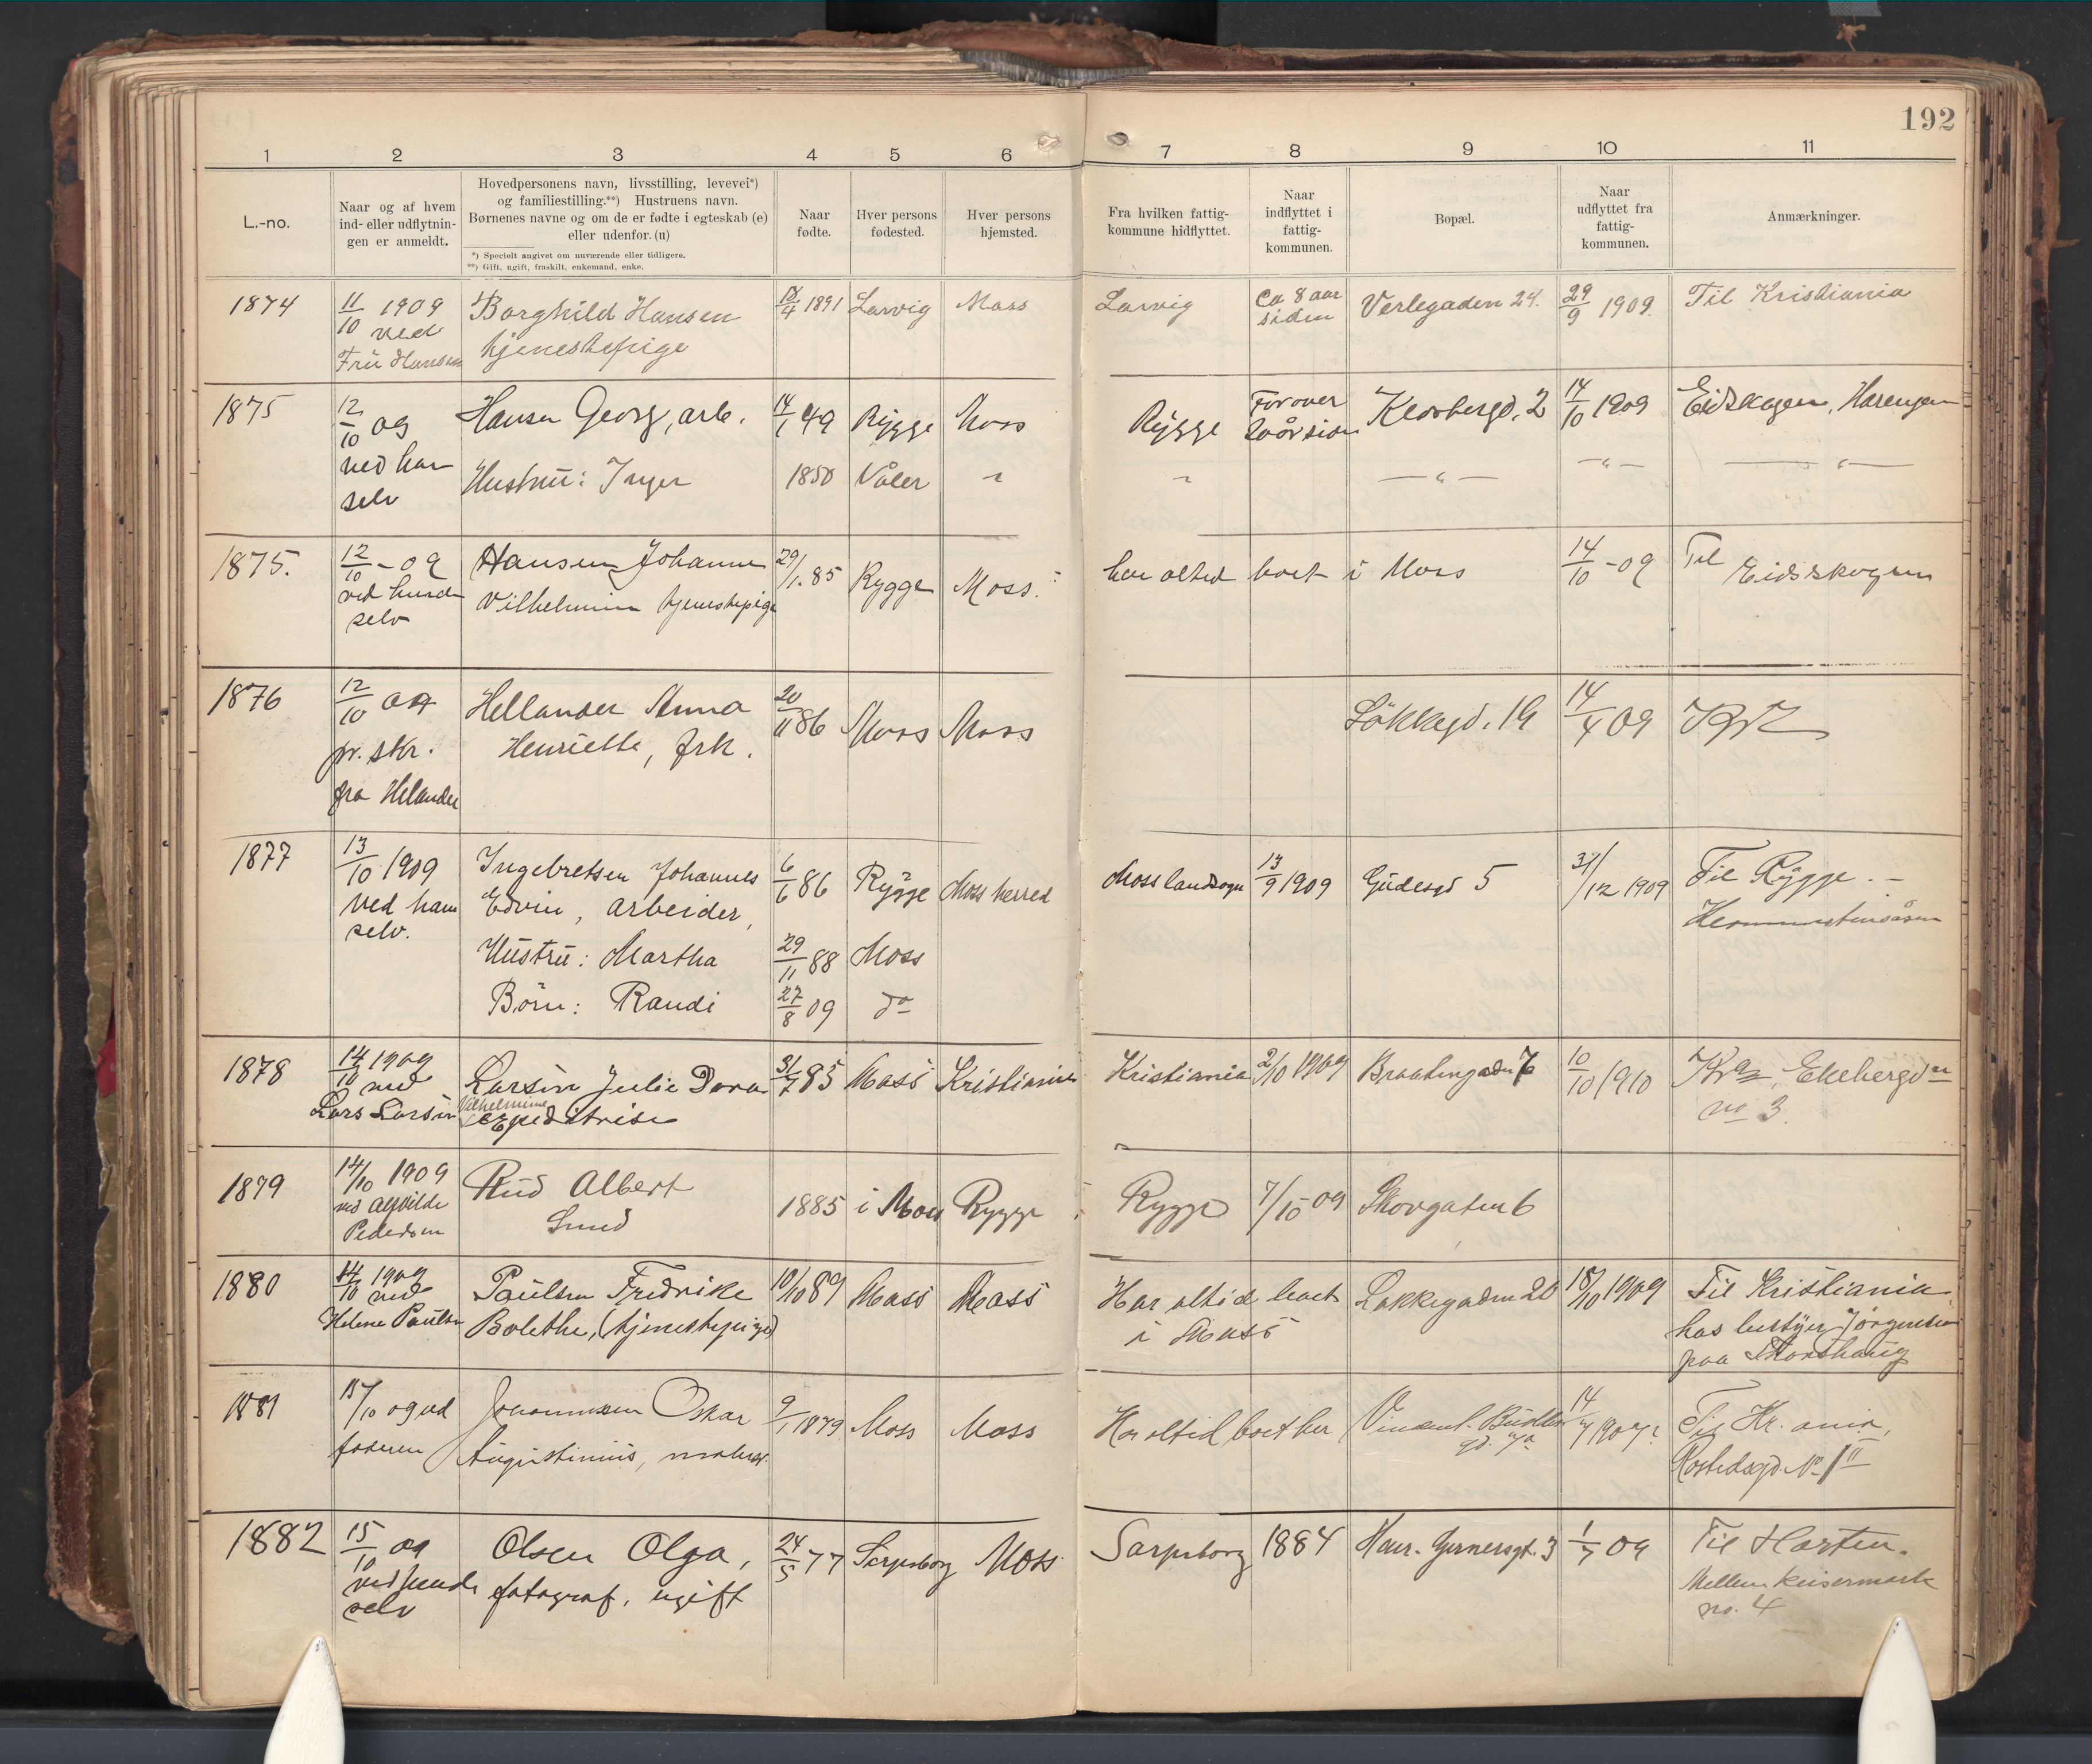 192
1 2 3 4 5 6 7 8 9 10 11
L.-no.
Naar og af hvem
ind- eller udflytnin-
gen er anmeldt.
Hovedpersonens navn, livsstilling, levevei*)
og familiestilling.**) Hustruens navn.
Børnenes navne og om de er fødte i egteskab (e)
eller udenfor. (u)
*) Specielt angivet om nuværende eller tidligere.
**) Gift, ugift, fraskilt, enkemand, enke.
Naar
fødte.
Hver persons
fødested.
Hver persons
hjemsted.
Fra hvilken fattig-
kommune hidflyttet.
Naar
indflyttet i
fattig-
kommunen.
Bopæl.
Naar
udflyttet fra
fattig-
kommunen.
Anmærkninger.
1874 11/10 1909 Borghild Hansen 1891 Larvig Moss Larvig Ca 8 aar Verlegaden 24. 29/9 1909. Til Kristiania
ved tjenestepige siden
Fru Hansen
1875 12/10 09 Hansen Georg, arb. 14/1 49 Rygge Moss Rygge For over 2 14/10 1909 Eidskogen,
ved ham Hustru: Inger 1850 Våler " " — " — — " — — " —
selv
1875. 12/10 - 09 Hansen Johanne 29/1. 85 Rygge Moss. har altid boet i Moss 14/10 - 09 Til Eidsskogen
ved hende Vilhelmine tjenestepige
selv
1876 12/10 09 Hellander Anna 20/11 86 Moss Moss Løkkegd. 19 14/4 09
pr. skr. Henriette, frk.
fra Helander
1877 13/10 1909 Ingebretsen Johannes 6/6 86 Rygge Moss herred Moss landsogn 13/9 1909 Gudesgd 5 31/12 1909 Til Rygge. -
ved ham Edvin, arbeider,
selv. Hustru: Martha 29/11 88 Moss
Børn: Randi 27/8 09 do
1878 14/10 1909 Larsen Julie Dora 31/7 85 Moss Kristiania Kristiania 2/10 1909 Braatengaden 7 10/10 1910 Kra, Ekebergdn
ved Vilhelmine no 3.
Lars Larsen Expeditrise
1879 14/10 1909 Rud Albert 1885 i Moss Rygge Rygge 7/10 09 Skovgaten 6
ved Alfvilde Smed
Pedersen
1880 14/10 1909 Paulsen Fredrike 10/10 89 Moss Moss Har altid boet Løkkegaden 20 18/10 1909 Til Kristiania
ved Bolethe, (tjenestepige) i Moss hos bestyrer Jörgensen
Helene Paulsen paa
1881 15/10 09 ved Johannesen Oskar 9/1 1879 Moss Moss Har altid boet her Vincent Budde 14/4 1907? Til Kr. ania,
faderen Augustinius, maler. gd. 7a Rostedsgd. No 1 II
1882 15/10 09 Olsen Olga, 24/5 77 Sarpsborg Moss Sarpsborg 1884 Henr. Gernersgt. 3 1/7 09 Til Horten.
ved hende fotograf, ugift Mellem
selv no. 4